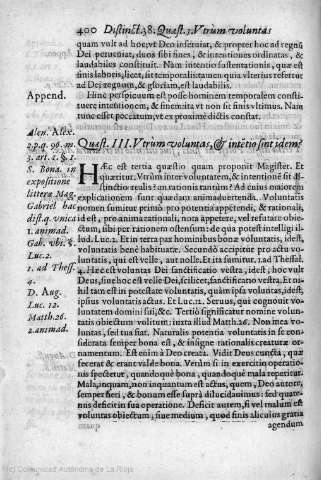 400 Distinct. 38. Quæst. 3. Vtrum voluntas
quam vult ad hoc, vt Deo inseruiat, & propter hoc ad regnũ
Dei perueniat, duo sibi fines, & intentiones ordinatas, &
laudabiles constituit. Nam intentio sustentationis, quæ est
finis laboris, licet, sit temporalis: tamen quia vlterius refertur
ad Dei regnum, & gloriam, est laudabilis.
Append. Hinc perspicuum est posse hominem temporalem consti-
tuere intentionem, & finem ita vt non sit finis vltimus. Nam
tunc esset peccatum, vt ex proximè dictis constat.
Alen. Alex.
2. p. q. 96. m.
3. art. 2. §. 1.
S. Bona. in
expositione
litteræ Mag.
Gabriel hac
dist. q. vnica
1. animad.
Gab. vbi. s
Luc. 2.
1. ad Thess.
4.
D. Aug.
Luc. 12.
Matth. 26.
2. animad.
Quæst. III. Vtrum voluntas, & intẽtio sint idem?
HÆc est tertia quæstio quam proponit Magister. Et
quæritur. Vtrum inter voluntatem, & intentionẽ sit di-
stinctio realis? an rationis tantùm? Ad cuius maiorem
explicationem sunt quædam animaduertenda. Voluntatis
nomen sumitur primò pro potentia appetendi, & rationali,
id est, pro anima rationali, nota appetere, vel refutare obie-
ctum, sibi per rationem ostensum: de qua potest intelligi il-
lud. Luc. 2. Et in terra pax hominibus bonæ voluntatis, idest,
voluntatis benè habituatæ. Secundò accipitur pro actu vo-
luntatis, qui est velle, aut nolle. Et ita sumitur. 1. ad Thessal.
4. Hæc est voluntas Dei sanctificatio vestra, idest, hoc vult
Deus, siue hoc est velle Dei, scilicet, sanctificatio vestra. Et ni-
hil tam est in potestate voluntatis, quàm ipsa voluntas, idest,
ipsius voluntatis actus. Et Luc. 12. Seruus, qui cognouit vo-
luntatem domini sui, &c. Tertiò significatur nomine volun-
tatis obiectum volitum: iuxta illud Matth. 26. Non mea vo-
luntas, sed tua fiat. Naturalis potentia voluntatis in se con-
siderata semper bona est, & insigne rationalis creaturæ or-
namentum. Est enim à Deo creata. Vidit Deus cuncta, quæ
fecerat, & erant valdè bona. Verùm si in exercitio operatio-
nis spectetur, quandoque bona, quandoquè mala reperitur.
Mala, inquam, non inquantum est actus, quem, Deo autore,
semper fieri, & bonum esse suprà dilucidauimus: sed quate-
nùs deficit in sua operatione. Deficit autem, si vel malum est
voluntas obiectum, siue medium, quod finis alicuius gratia
agendum
(c) Comunidad Autónoma de La Rioja